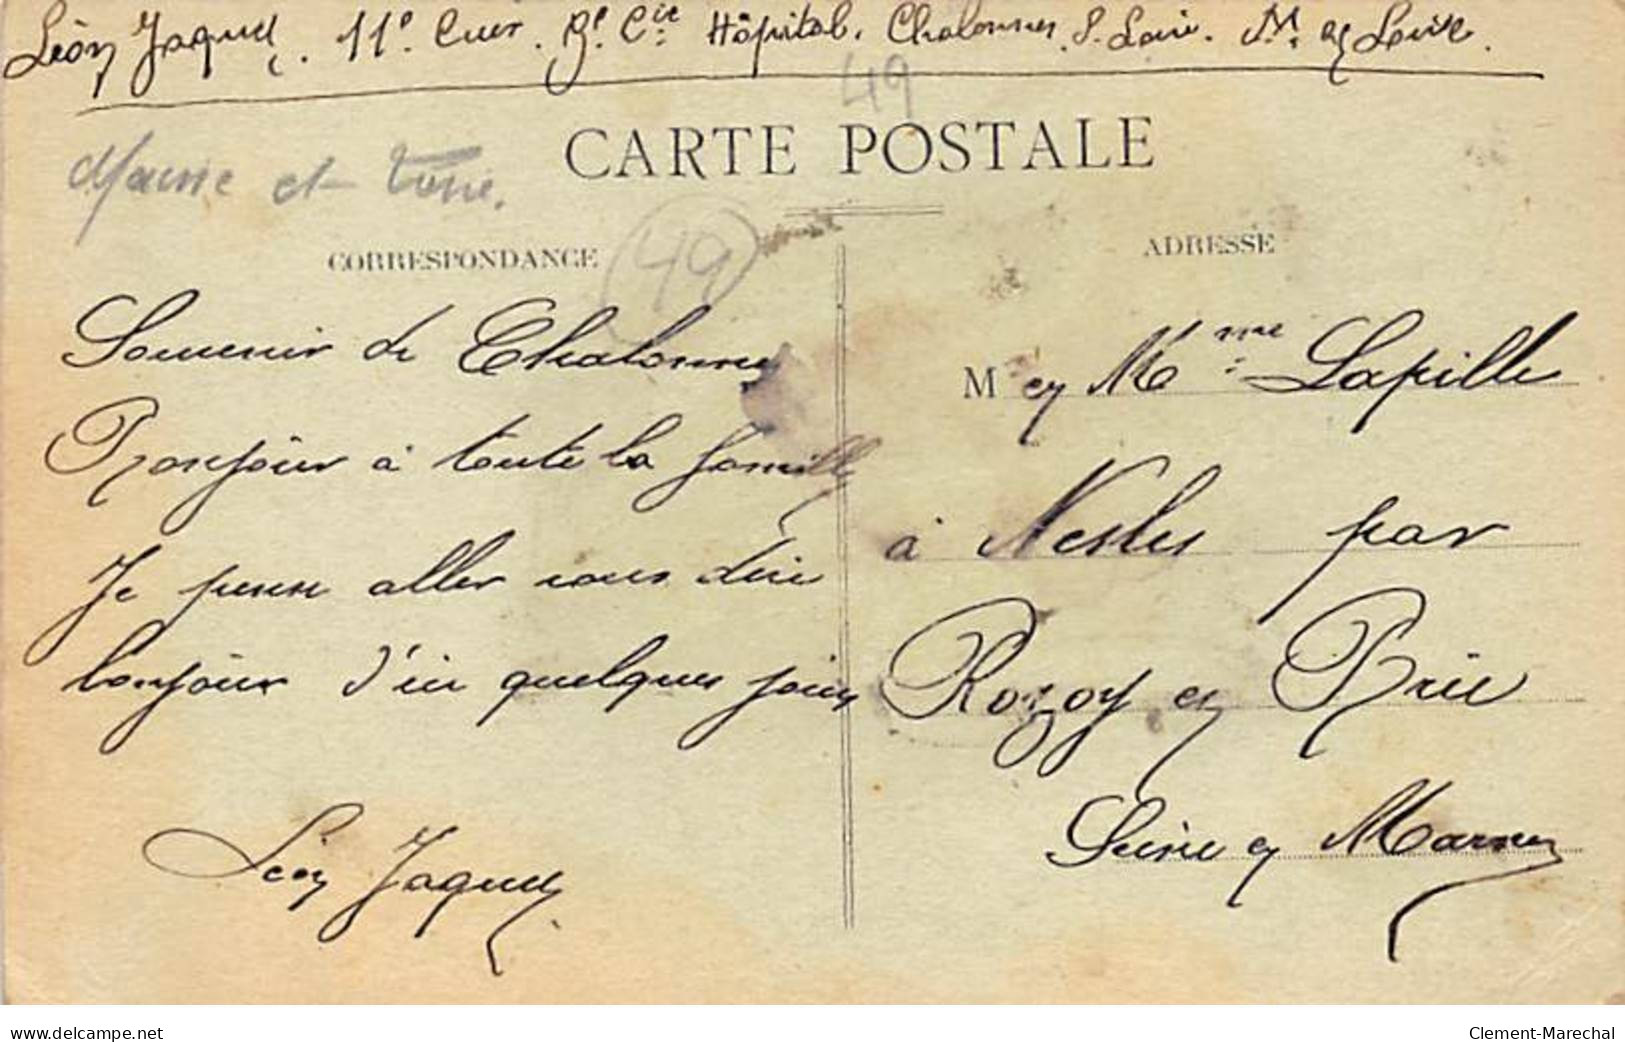 Léon Jaquel, 11e Cuir. Bl. Cie Hôpital. Chalonnes s. Loire. M. et Loire.
49
CARTE POSTALE
Maine et Loire.
CORRESPONDANCE
49
ADRESSE
Souvenir de Chalonnes
Bonjour à toute la famille
Je pense aller vous dire
bonjour d'ici quelques jours
Léon Jaquel
M et Mme Lapille
à Nesles par
Rozoy en Brie
Seine et Marne
www.delcampe.net
Clement-Marechal